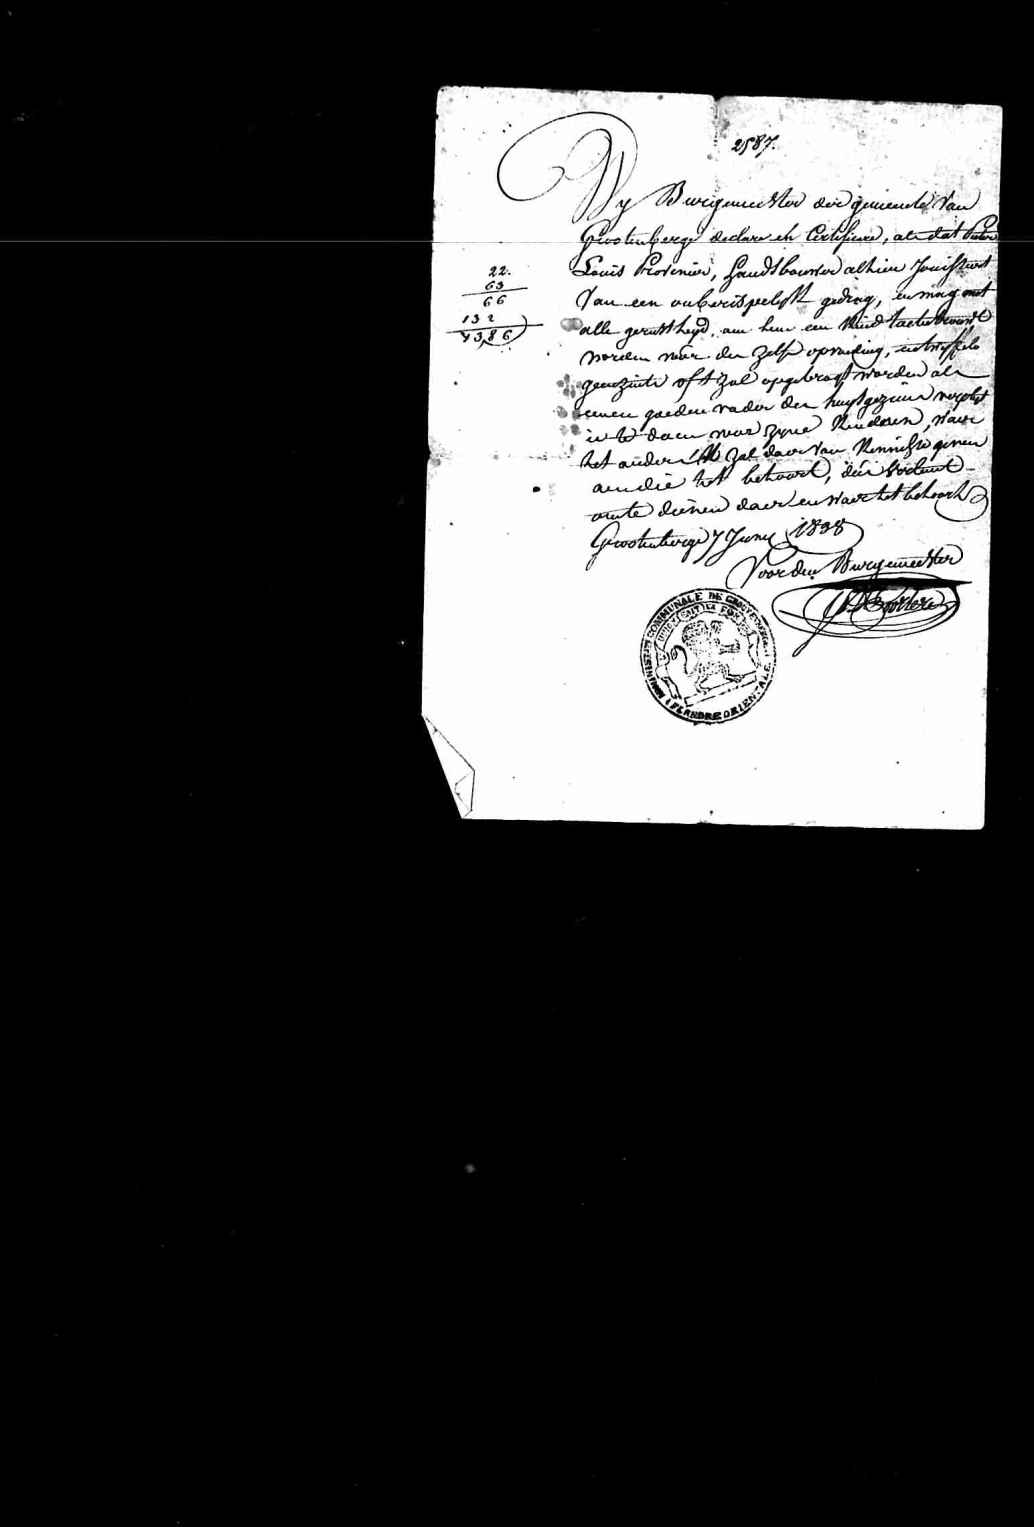 2587.
Wy Burgemeester der gemeente van
Grootenberge declare en Certifiere, als dat Pieter
Louis Provenier, Landtbouwer alhier Jouisseert
van een onberispelyk gedrag, en mag met
alle gerustheyd, aen hem een Kind toebetrouwt
worden voor der zelfs opvoeding,
oft zal opgebragt worden als
eenen goeden vader der huysgezin verpligt
is te doen voor zyne Kinderen, waer
het ander zal daer van Kennisse geven
aen die het behoort, dit
omte dienen daer en waer het behoort
Grootenberge 7 Juny 1838
Voor den Burgemeester
22.
63
66
132
1386
ADMINISTION COMMUNALE DE GROOTENBERGE
(FLANDRE ORIENTALE)